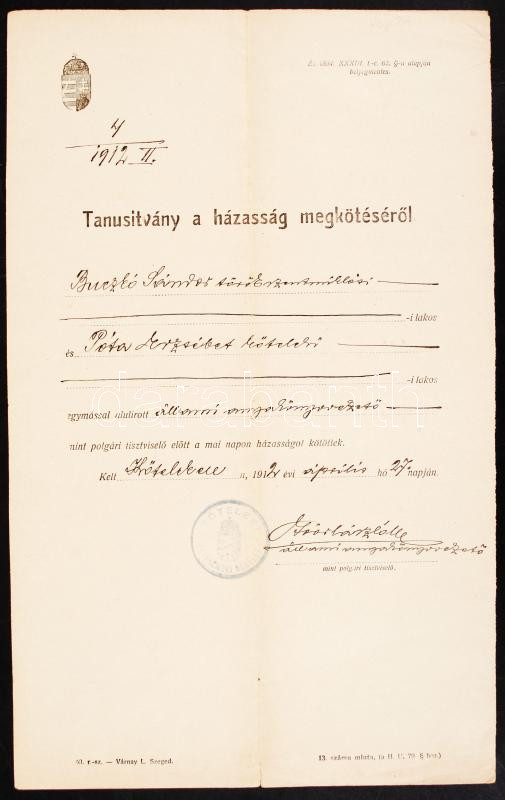 Az 1894. XXXIII. t.-c. 62. §-a alapján
bélyegmentes.
4
1912 II.
Tanusitvány a házasság megkötéséről
Buczkó Sándor törökszentmiklósi
-i lakos
és Póta Erzsébet kőteleki
-i lakos
egymással alulirott állami anyakönyvvezető
mint polgári tisztviselő előtt a mai napon házasságot kötöttek.
Kelt Kőteleken n, 1912 évi április hó 27 napján.
KŐTELEK
állami anyakönyvvezető
mint polgári tisztviselő.
darabanth
40. r.-sz. — Várnay L. Szeged.
13. számu minta, (a H. U. 79 § hoz.)